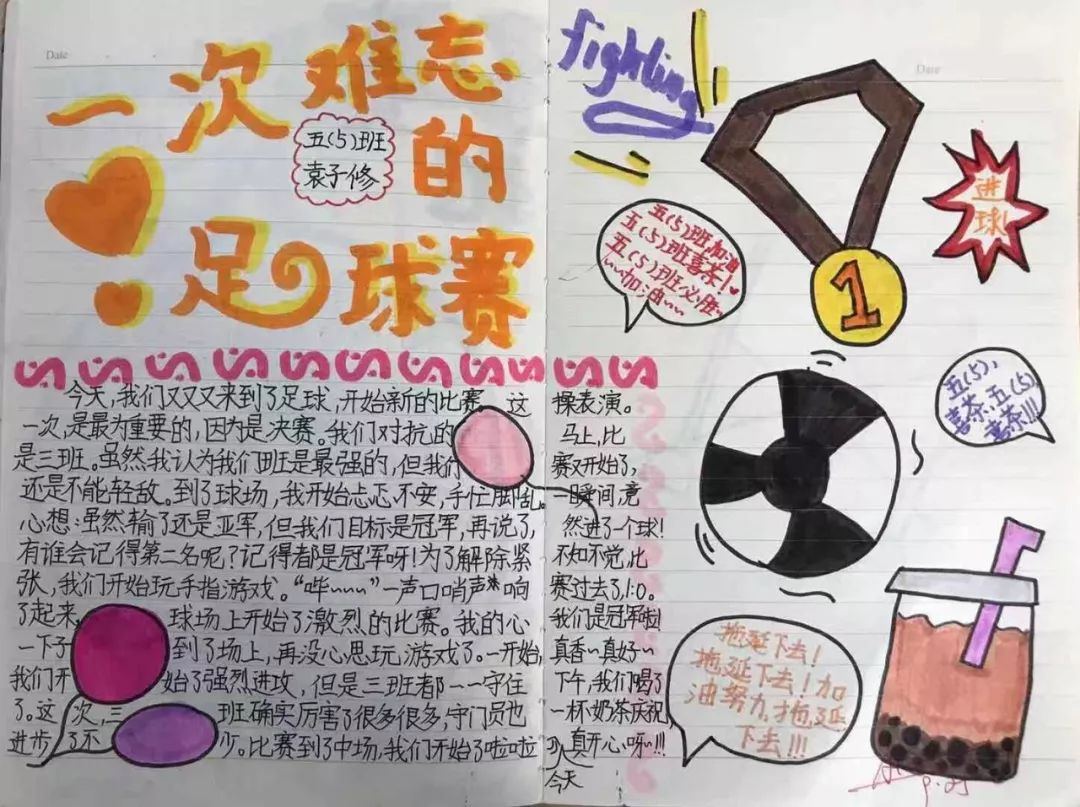 Date
一次难忘
的
足球赛
五(5)班
袁子修
今天,我们又又又来到了足球,开始新的比赛。这
一次,是最为重要的,因为是决赛。我们对抗的
是三班。虽然我认为我们班是最强的,但我们
还是不能轻敌。到了球场,我开始忐忑不安,手忙脚乱。
心想:虽然输了还是亚军,但我们目标是冠军,再说了,
有谁会记得第二名呢?记得都是冠军呀!为了解除紧
张,我们开始玩手指游戏。“哗~~~”一声口哨声响
了起来,球场上开始了激烈的比赛。我的心
一下子到了场上,再没心思玩游戏了。一开始,
我们开始了强烈进攻,但是三班都一一守住
了。这次,三班确实厉害了很多很多,守门员也
进步了不少。比赛到了中场,我们开始了啦啦
操表演。
马上,比
赛又开始了,
一瞬间,竟
然进了一个球!
不知不觉,比
赛过去了,1:0。
我们是冠军啦!
真香~真好~
下午,我们喝了
一杯奶茶庆祝
真开心呀~!!!
今天
fighting
Date
1
进
球!
五(5)班加油
五(5)班喜茶!
五(5)班必胜~
~~加油~~
五(5),
喜茶,五(5)
喜茶!!!
拖延下去!
拖延下去!加
油努力,拖延
下去!!!
9.25